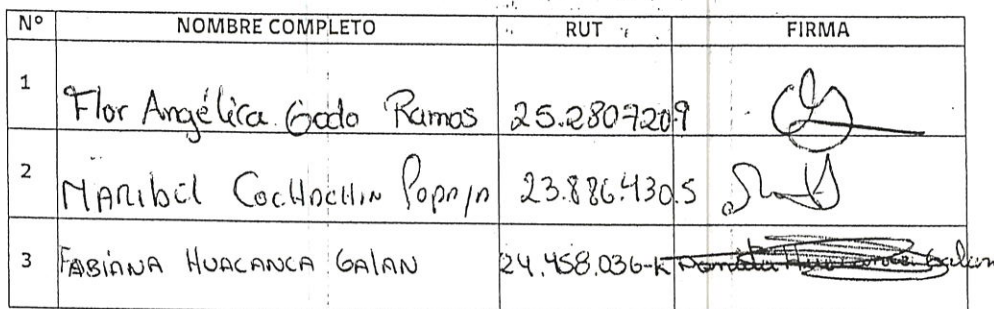 Nº NOMBRE COMPLETO RUT FIRMA
1 Flor Angélica Godo Ramos 25.280.720-9
2 MARIBEL COCHACHIN 23.886.430.5
3 FABIANA HUACANCA GALAN 24.458.036-K Galan